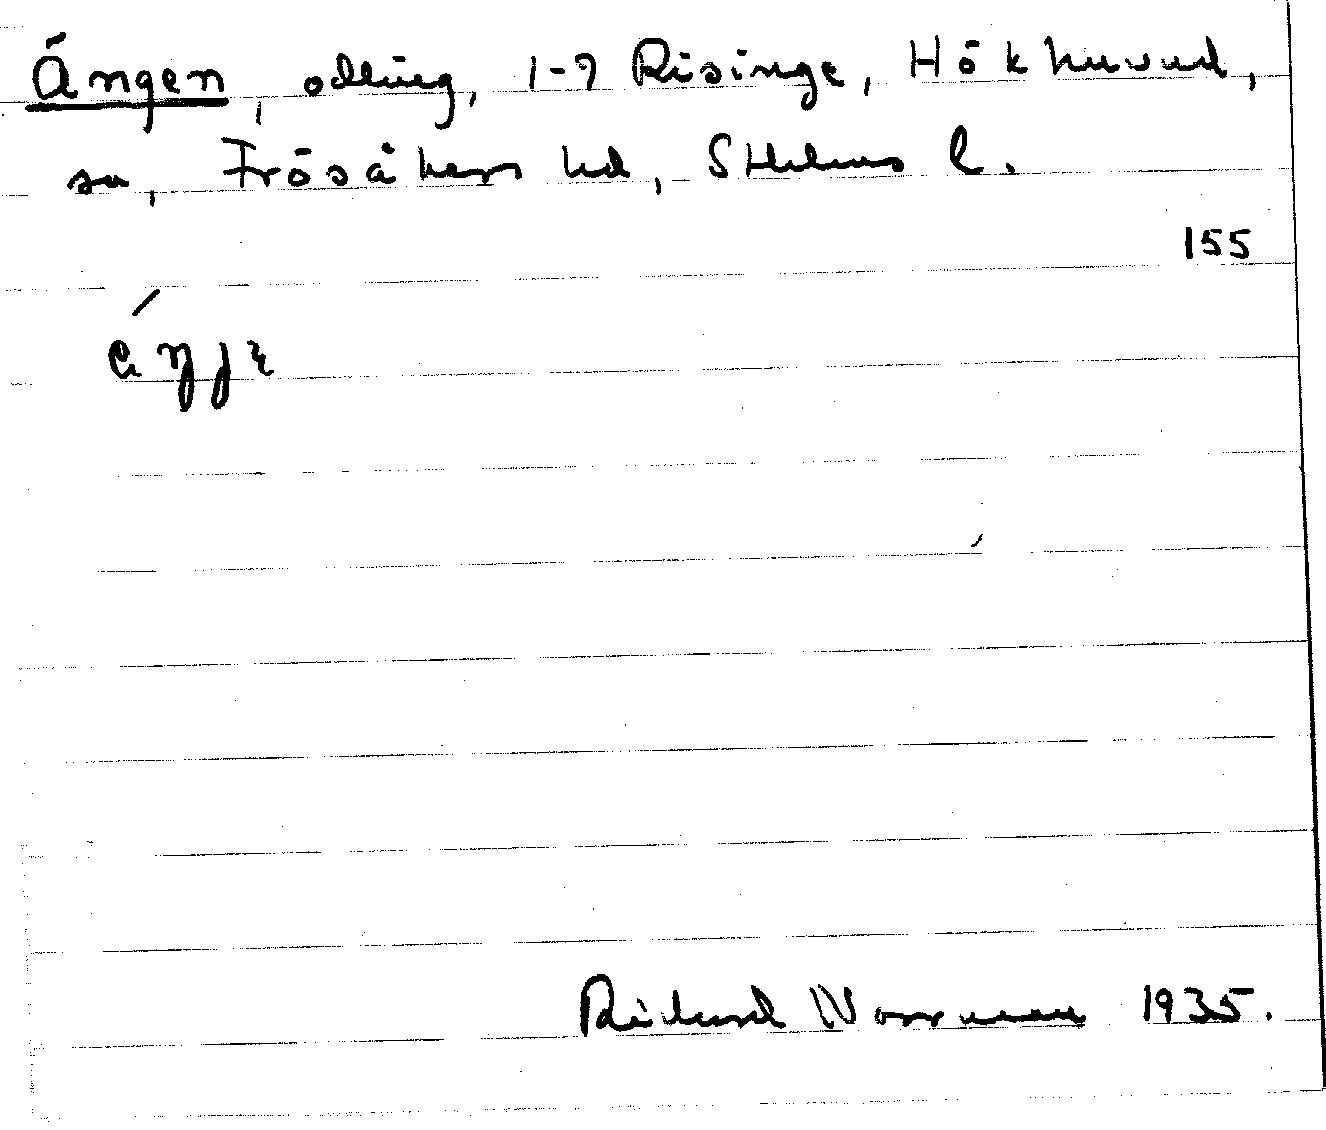 Ängen, odling, 1-7 Risinge, Hökhuvud,
sn, Frösåkers hd, Sthlms l.
155
Richard Norrman 1935.